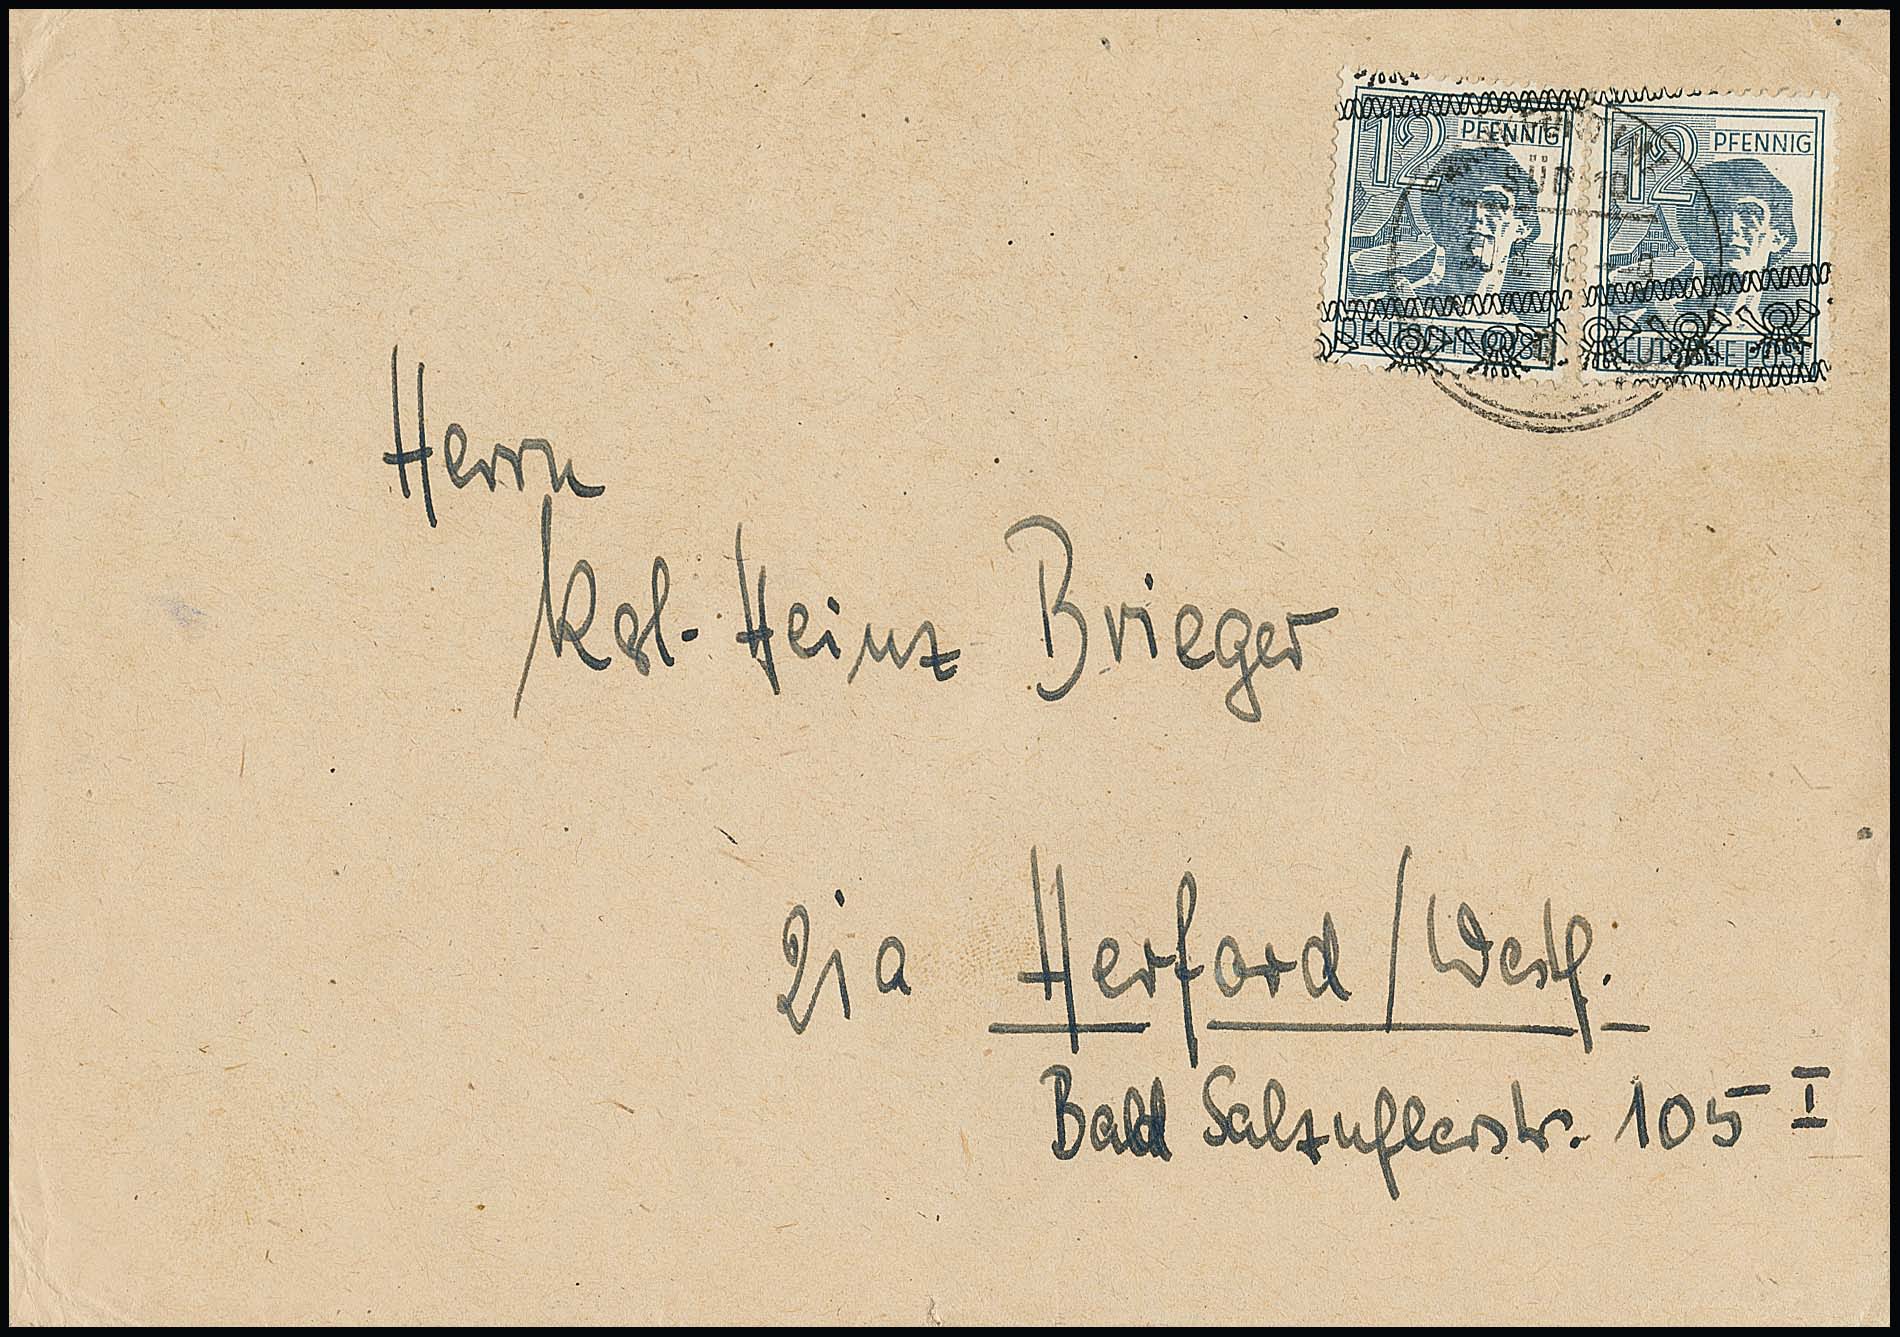 12 PFENNIG
DEUTSCHE POST
12 PFENNIG
DEUTSCHE POST
SÜD 10
Herrn
Kgl.-Heinz Brieger
21a Herford/Westf.
Bad Salzuflerstr. 105 I